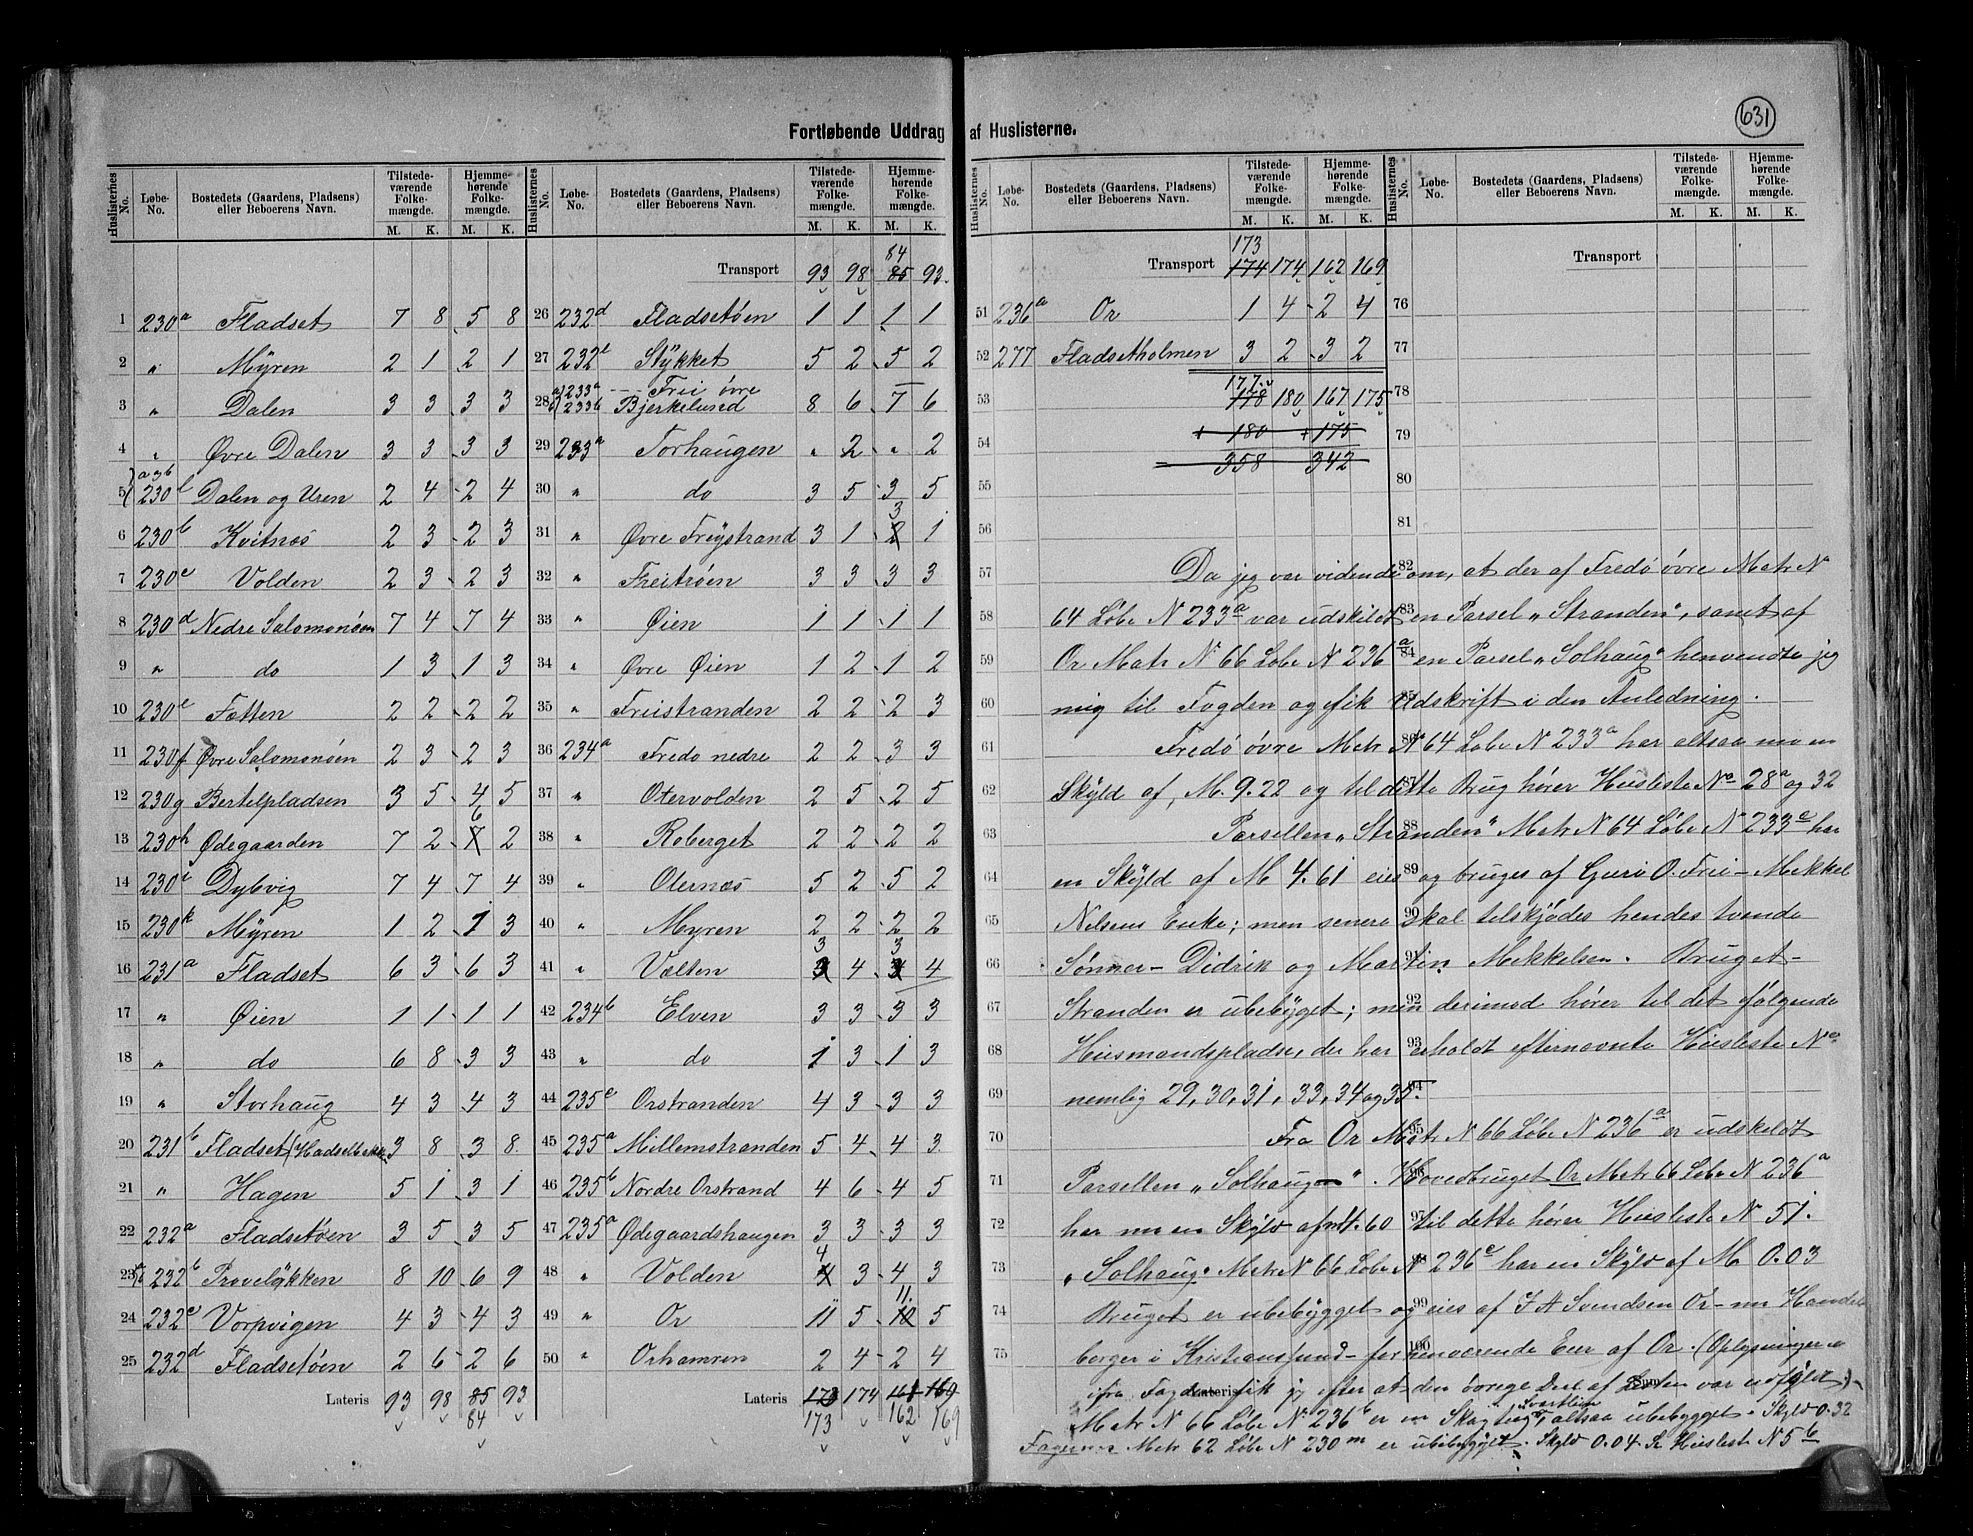 631
Fortløbende Uddrag af Huslisterne.
Huslisternes No. Løbe-No. Bostedets (Gaardens, Pladsens) eller Beboerens Navn. Tilstedeværende Folkemængde. M. K. Hjemmehørende Folkemængde. M. K.
1 230a Fladset 7 8 5 8
2 " Myren 2 1 2 1
3 " Dalen 3 3 3 3
4 " Øvre Dalen 3 3 3 3
5 a og b 230l Dalen og Uren 2 4 2 4
6 230b Kvitnæs 2 3 2 3
7 230c Volden 2 3 2 3
8 230d Nedre Salomonsøen 7 4 7 4
9 " do 1 3 1 3
10 230e Fætten 2 2 2 2
11 230f Øvre Salomonøen 2 3 2 3
12 230g Bertelpladsen 3 5 4 5
13 230h Ødegaarden 7 2 7 6 2
14 230i Dybvig 7 4 7 4
15 230k Myren 1 2 1 3
16 231a Fladset 6 3 6 3
17 " Øien 1 1 1 1
18 " do 6 8 3 3
19 " Storhaug 4 3 4 3
20 231b Fladset 3 8 3 8
21 " Hagen 5 1 3 1
22 232a Fladsetøen 3 5 3 5
23 232b Provelykken 8 10 6 9
24 232c Vorpvigen 4 3 4 3
25 232d Fladsetøen 2 6 2 6
Lateris 93 98 85 93
84
Huslisternes No. Løbe-No. Bostedets (Gaardens, Pladsens) eller Beboerens Navn. Tilstedeværende Folkemængde. M. K. Hjemmehørende Folkemængde. M. K.
84
Transport 93 98 85 93
26 232d Fladsetøen 1 1 1 1
27 232e Stykket 5 2 5 2
28 a) 233a Frei øvre
b) 233b Bjerkelund 8 6 7 6
29 233a Torhaugen " 2 " 2
30 " do 3 5 3 5
31 " Øvre Freystrand 3 1 2 3 1
32 " Freitrøen 3 3 3 3
33 " Øien 1 1 1 1
34 " Øvre Øien 1 2 1 2
35 " Freistranden 2 2 2 3
36 234a Fredø nedre 2 2 3 3
37 " Otervolden 2 5 2 5
38 " Roberget 2 2 2 2
39 " Oternæs 5 2 5 2
40 " Myren 2 2 2 2
41 " Vælten 3 4 3 4
42 234b Elven 3 3 3 3
43 " do 1 3 1 3
44 235c Orstranden 4 3 3 3
45 235a Millemstranden 5 4 4 3
46 235b Nordre Orstrand 4 6 4 5
47 235a Ødegaardshaugen 3 3 3 3
48 " Volden 4 3 4 3
49 " Or 11 5 10 11 5
50 " Orhamren 2 4 2 4
Lateris 173 174 161 169
173 162 169
Huslisternes No. Løbe-No. Bostedets (Gaardens, Pladsens) eller Beboerens Navn. Tilstedeværende Folkemængde. M. K. Hjemmehørende Folkemængde. M. K.
173
Transport 174 174 162 169
51 236a Or 1 4 2 4
52 277 Fladsetholmen 3 2 3 2
177
53 178 180 167 175
54 + 180 + 175
= 358 342
55
56
Huslisternes No. Løbe-No. Bostedets (Gaardens, Pladsens) eller Beboerens Navn. Tilstedeværende Folkemængde. M. K. Hjemmehørende Folkemængde. M. K.
Transport
76
77
78
79
80
81
57 Da jeg var vidende 82 om, at der af Fredø øvre Matr N
58 64 Løbe N 233a var udskildt 83 en Parsel „Stranden", samt af
59 Or Matr N 66 Løbe N 236a 84 en Parsel „Solhaug" henvendte jeg
60 mig til Fogden og fik 85 Udskrift i den Anledning.
61 Fredø øvre Matr 86 N 64 Løbe N 233a har altsaa nu en
62 Skyld af, M. 9.22 og til 87 dette Brug hører Husliste No 28a og 32
63 Parsellen „Stranden" 88 Matr N 64 Løbe N 233c har
64 en Skyld af M 4.61 eies 89 og bruges af Guri O. Frei - Mekkel
65 Nilsens Enke; men senere 90 skal tilskjødes hendes tvende
66 Sønner - Didrik og Martin 91 Mekkelsen. Bruget -
67 Stranden er ubebyget; men 92 derimod hører til det følgende
68 Husmandspladse, der har 93 erholdt efternævnte Husliste No
69 nemlig 29, 30, 31, 33, 34 og 35. 94
70 Fra Or Matr 95 N 66 Løbe N 236a er udskildt
71 Parsellen „Solhaug". 96 Hovedbruget Or Matr 66 Løbe N 236a
72 har nu en Skyld af mk.60 97 til dette hører Husliste N 51.
73 „Solhaug" Matr N 66 Løbe 98 N 236c har en Skyld af M 0.03
74 Bruget er ubebygget 99 og eies af J A Svendsen Or - nu Handels
75 berger i Kristiansund - for 100 henværende Eier af Or. (Oplysningerne
ifra Fogden fik jeg efter at den øvrige Deel af Listen var udfyldt.) -
Lateris Sum
Matr N 66 Løbe N 236b er en Skogteig, Svartlien altsaa ubebygget. Skyld 0.32
Fagernes Matr 62 Løbe N 230m er ubebygget. Skyld 0.04 Se Husliste N 5b